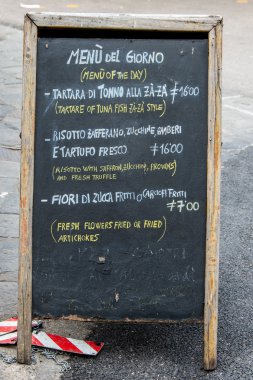 MENÙ DEL GIORNO
(MENÙ OF THE DAY)
- TARTARA DI TONNO ALLA ZÀ-ZÀ €16'00
(TARTARE OF TUNA FISH ZÀ-ZÀ STYLE)
- RISOTTO ZAFFERANO, ZUCCHINE, GAMBERI
E TARTUFO FRESCO €16'00
(RISOTTO WITH SAFFRON, ZUCCHINI, PROWNS)
AND FRESH TRUFFLE
- FIORI DI ZUCCA FRITTI O CARCIOFI FRITTI
€7'00
(FRESH FLOWERS FRIED OR FRIED
ARTICHOKES)